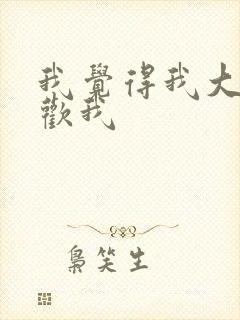 我覺得我大
歡我
梟笑生